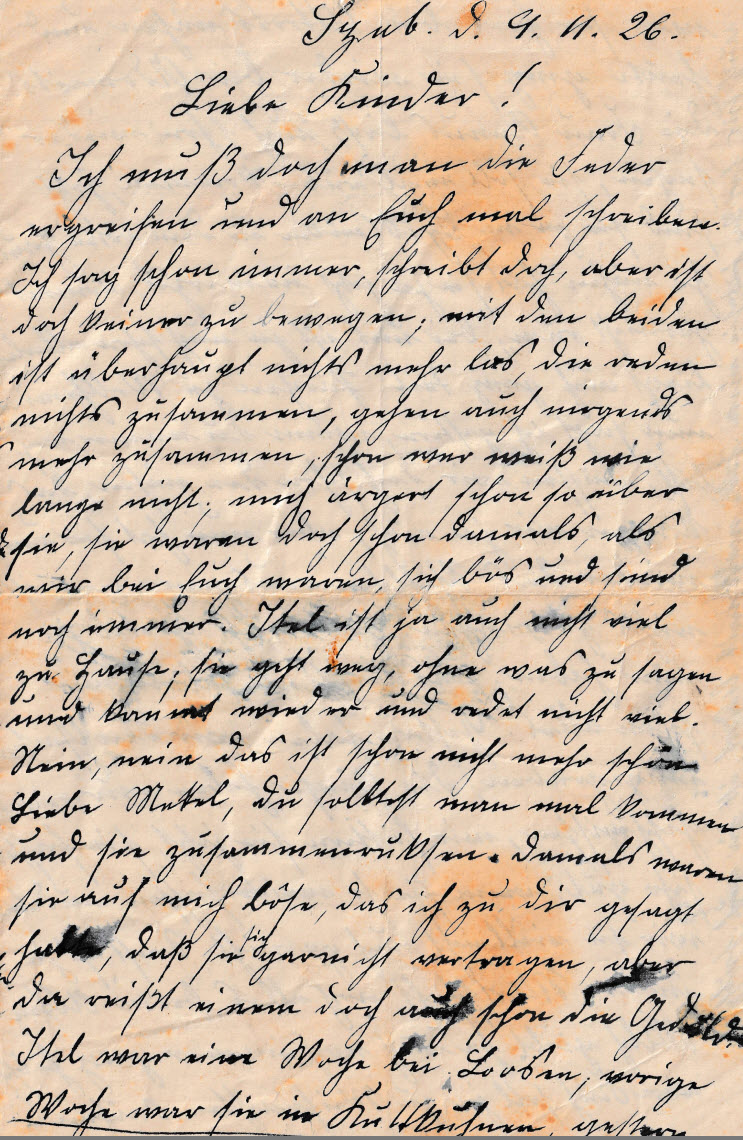 Szub. d. 9. 11. 26.
Liebe Kinder!
Ich muß doch man die Feder
ergreifen und an Euch mal schreiben.
Ich sag schon immer, schreibt doch, aber ist
doch keiner zu bewegen; mit den beiden
ist überhaupt nichts mehr los, die reden
nichts zusammen, gehen auch nirgends
mehr zusammen, schon wer weiß wie
lange nicht; mich ärgert schon so über
sie, sie waren doch schon damals, als
wir bei Euch waren, sich bös und sind
noch immer. Itel ist ja auch nicht viel
zu Hause, sie geht weg, ohne was zu sagen
und kommt wieder und redet nicht viel.
Nein, nein das ist schon nicht mehr schön
Liebe Mekel, du solltest man mal kommen
und sie zusammenruksen. Damals waren
sie auf mich böse, das ich zu dir gesagt
hatte, daß sie sich garnicht vertragen, aber
da reißt einem doch auch schon die Geduld.
Itel war eine Woche bei Loosen, vorige
Woche war sie in Kuttkuhnen, gestern